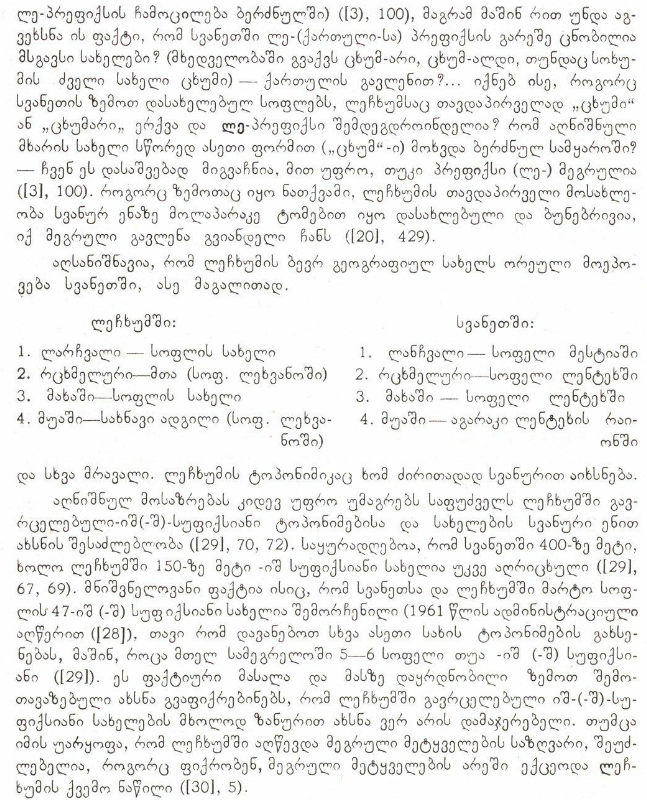 ლე-პრეფიქსის ჩამოცილება ბერძნულში) ([3), 100), მაგრამ მაშინ რით უნდა აგ-
ვეხსნა ის ფაქტი, რომ სვანეთში ლე-(ქართული-სა) პრეფიქსის გარეშე ცნობილია
მსგავსი სახელები? (მხედველობაში გვაქვს ცხუმ-არი, ცხუმ-ალდი, თუნდაც სოხუ-
მის ძველი სახელი ცხუმი) — ქართულის გავლენით?... იქნებ ისე, როგორც
სვანეთის ზემოთ დასახელებულ სოფლებს, ლეჩხუმსაც თავდაპირველად „ცხუმი“
ან „ცხუმარი„ ერქვა და ლე-პრეფიქსი შემდეგდროინდელია? რომ აღნიშნული
მხარის სახელი სწორედ ასეთი ფორმით („ცხუმ“-ი) მოხვდა ბერძნულ სამყაროში?
— ჩვენ ეს დასაშვებად მიგვაჩნია, მით უფრო, თუკი პრეფიქსი (ლე-) მეგრულია
([3), 100). როგორც ზემოთაც იყო ნათქვამი, ლეჩხუმის თავდაპირველი მოსახლე-
ობა სვანურ ენაზე მოლაპარაკე ტომებით იყო დასახლებული და ბუნებრივია,
იქ მეგრული გავლენა გვიანდელი ჩანს ([20), 429).
აღსანიშნავია, რომ ლეჩხუმის ბევრ გეოგრაფიულ სახელს ორეული მოეპო-
ვება სვანეთში, ასე მაგალითად.
ლეჩხუმში:
1. ლარჩვალი — სოფლის სახელი
2. რცხმელური—მთა (სოფ. ლეხვანოში)
3. მახაში—სოფლის სახელი
4. მუაში—სახნავი ადგილი (სოფ. ლეხვა-
ნოში)
სვანეთში:
1. ლანჩვალი — სოფელი მესტიაში
2. რცხმელური—სოფელი ლენტეხში
3. მახაში — სოფელი ლენტეხში
4. მუაში — აგარაკი ლენტეხის რაი-
ონში
და სხვა მრავალი. ლეჩხუმის ტოპონიმიკაც ხომ ძირითადად სვანურით აიხსნება.
აღნიშნულ მოსაზრებას კიდევ უფრო უმაგრებს საფუძველს ლეჩხუმში გავ-
რცელებული-იშ(-შ)-სუფიქსიანი ტოპონიმებისა და სახელების სვანური ენით
ახსნის შესაძლებლობა ([29), 70, 72). საყურადღებოა, რომ სვანეთში 400-ზე მეტი,
ხოლო ლეჩხუმში 150-ზე მეტი -იშ სუფიქსიანი სახელია უკვე აღრიცხული ([29),
67, 69). მნიშვნელოვანი ფაქტია ისიც, რომ სვანეთსა და ლეჩხუმში მარტო სოფ-
ლის 47-იშ (-შ) სუფიქსიანი სახელია შემორჩენილი (1961 წლის ადმინისტრაციული
აღწერით ([28]), თავი რომ დავანებოთ სხვა ასეთი სახის ტოპონიმების გახსე-
ნებას, მაშინ, როცა მთელ სამეგრელოში 5—6 სოფელი თუა -იშ (-შ) სუფიქსი-
ანი ([29]). ეს ფაქტიური მასალა და მასზე დაყრდნობილი ზემოთ შემო-
თავაზებული ახსნა გვაფიქრებინებს, რომ ლეჩხუმში გავრცელებული იშ-(-შ)-სუ-
ფიქსიანი სახელების მხოლოდ ზანურით ახსნა ვერ არის დამაჯერებელი. თუმცა
იმის უარყოფა, რომ ლეჩხუმში აღწევდა მეგრული მეტყველების საზღვარი, შეუძ-
ლებელია, როგორც ფიქრობენ, მეგრული მეტყველების არეში ექცეოდა ლეჩ-
ხუმის ქვემო ნაწილი ([30), 5).